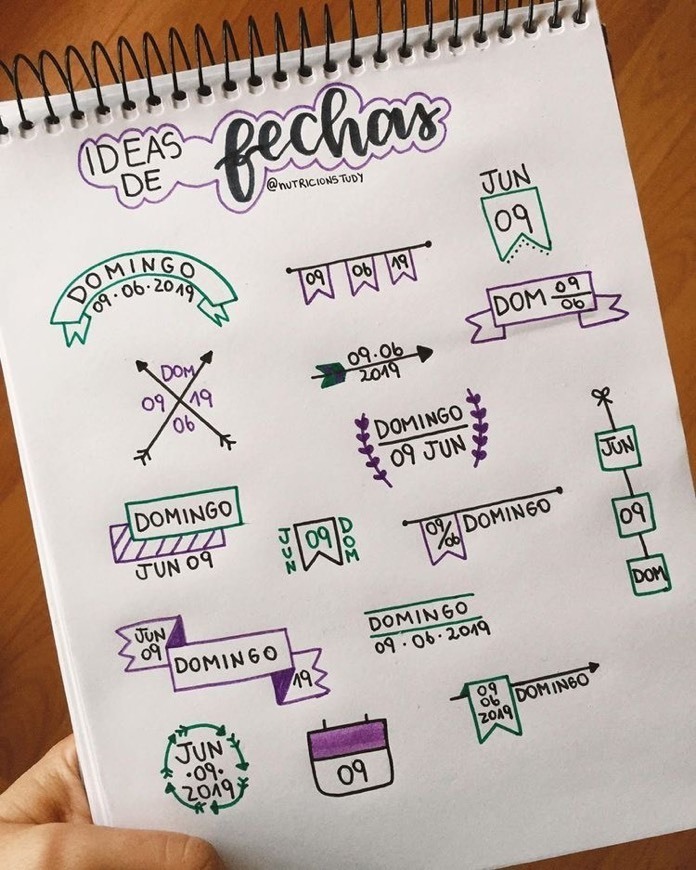 IDEAS
DE
fechas
@nutricionstudy
JUN
09
DOMINGO
09·06·2019
09 06 19
DOM 09
06
DOM
09 19
06
09·06
2019
DOMINGO
09 JUN
JUN
09
DOM
DOMINGO
JUN 09
JUN
09
DOM
09/06 DOMINGO
JUN
09
DOMINGO
19
DOMINGO
09·06·2019
09
06
2019
DOMINGO
JUN
·09·
2019
09